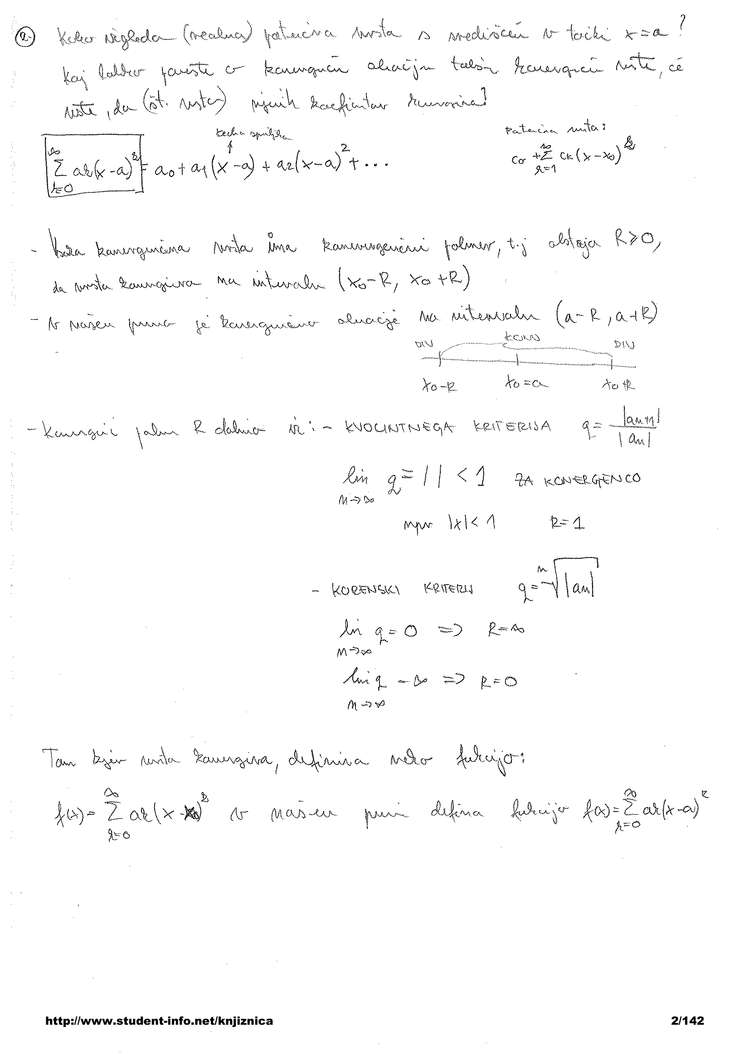 2. Kako izgleda (realna) potenčna vrsta s središčem v točki x=a?
Kaj lahko poveste o konvergenčn območju takšn konvergenčn vrste, če
veste, da (št. vrsta) njenih koeficientov konvergira?
Σ_{k=0}^{∞} ak(x-a)^k = a0 + a1(x-a) + a2(x-a)^2 + ...
Potenčna vrsta:
c0 + Σ_{k=1}^{∞} ck(x-x0)^k
- Vsaka konvergenčna vrsta ima konvergenčni polmer, t.j. obstaja R≥0,
da vrsta konvergira na intervalu (x0-R, x0+R)
- V našem primeru je konvergenčno območje na intervalu (a-R, a+R)
DIV KONV DIV
x0-R x0=a x0+R
- Konvergenčni polmer R dobimo iz: - KVOCINTNEGA KRITERIJA q = |an+1| / |an|
lim_{n→∞} q = | | < 1 ZA KONERGENCO
npr |x|<1 R=1
- KORENSKI KRITERIJ q = ⁿ√|an|
lim_{n→∞} q = 0 => R=∞
lim_{n→∞} q - ∞ => R=0
Tam kjer vrsta konvergira, definira neko funkcijo:
f(x) = Σ_{k=0}^{∞} ak(x-x0)^k v našem primeru definira funkcijo f(x) = Σ_{k=0}^{∞} ak(x-a)^k
http://www.student-info.net/knjiznica 2/142